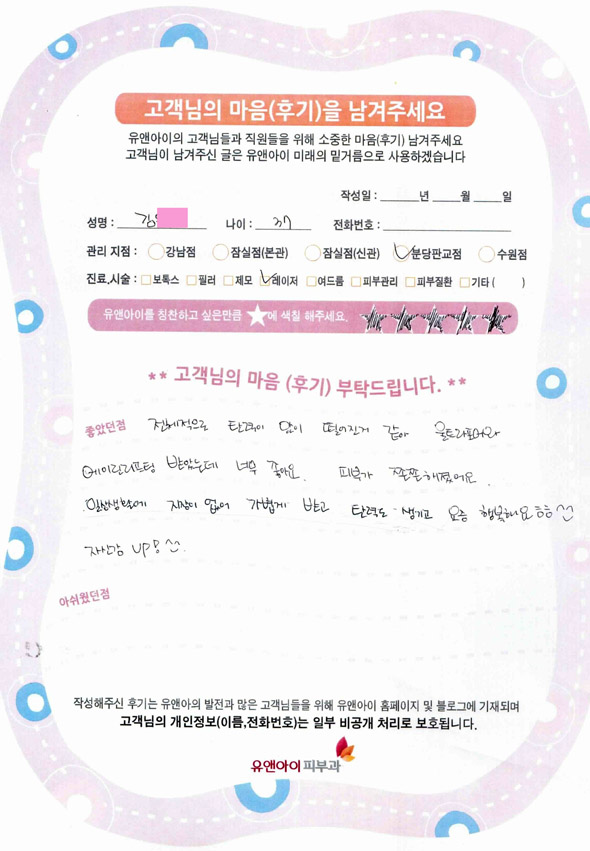 고객님의 마음(후기)을 남겨주세요
유앤아이의 고객님들과 직원들을 위해 소중한 마음(후기) 남겨주세요
고객님이 남겨주신 글은 유앤아이 미래의 밑거름으로 사용하겠습니다
작성일 : ______년 ____월 ____일
성명 : 김 나이 : 37 전화번호 :
관리 지점 : 강남점 잠실점(본관) 잠실점(신관) 분당판교점 수원점
진료,시술 : 보톡스 필러 제모 레이저 여드름 피부관리 피부질환 기타 ( )
유앤아이를 칭찬하고 싶은만큼 ★에 색칠 해주세요.
** 고객님의 마음 (후기) 부탁드립니다. **
좋았던점 전체적으로 탄력이 많이 떨어진거 같아 울트라포머와
에이린리프팅 받았는데 너무 좋아요. 피부가 쫀쫀해졌어요.
일반생활에 지장이 없어 가볍게 받고 탄력도 생기고 요즘 행복해요 ㅎㅎ ^^
자신감 UP ^^.
아쉬웠던점
작성해주신 후기는 유앤아의 발전과 많은 고객님들을 위해 유앤아이 홈페이지 및 블로그에 기재되며
고객님의 개인정보(이름,전화번호)는 일부 비공개 처리로 보호됩니다.
유앤아이피부과